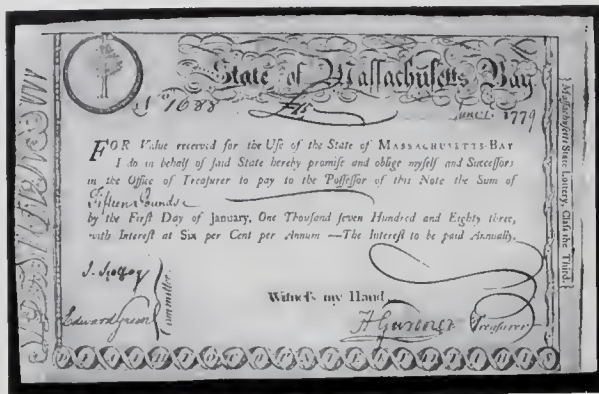 State of Massachusetts Bay
No 1688 £15 June 1. 1779
FOR Value received for the Use of the State of MASSACHUSETTS-BAY
I do in behalf of said State hereby promise and oblige myself and Successors
in the Office of Treasurer to pay to the Possessor of this Note the Sum of
Fifteen Pounds
by the First Day of January, One Thousand seven Hundred and Eighty three,
with Interest at Six per Cent per Annum —The Interest to be paid Annually.
Witness my Hand
Edward Green
Committee.
H Gardner Treasurer
Massachusetts State Lottery, Class the Third.